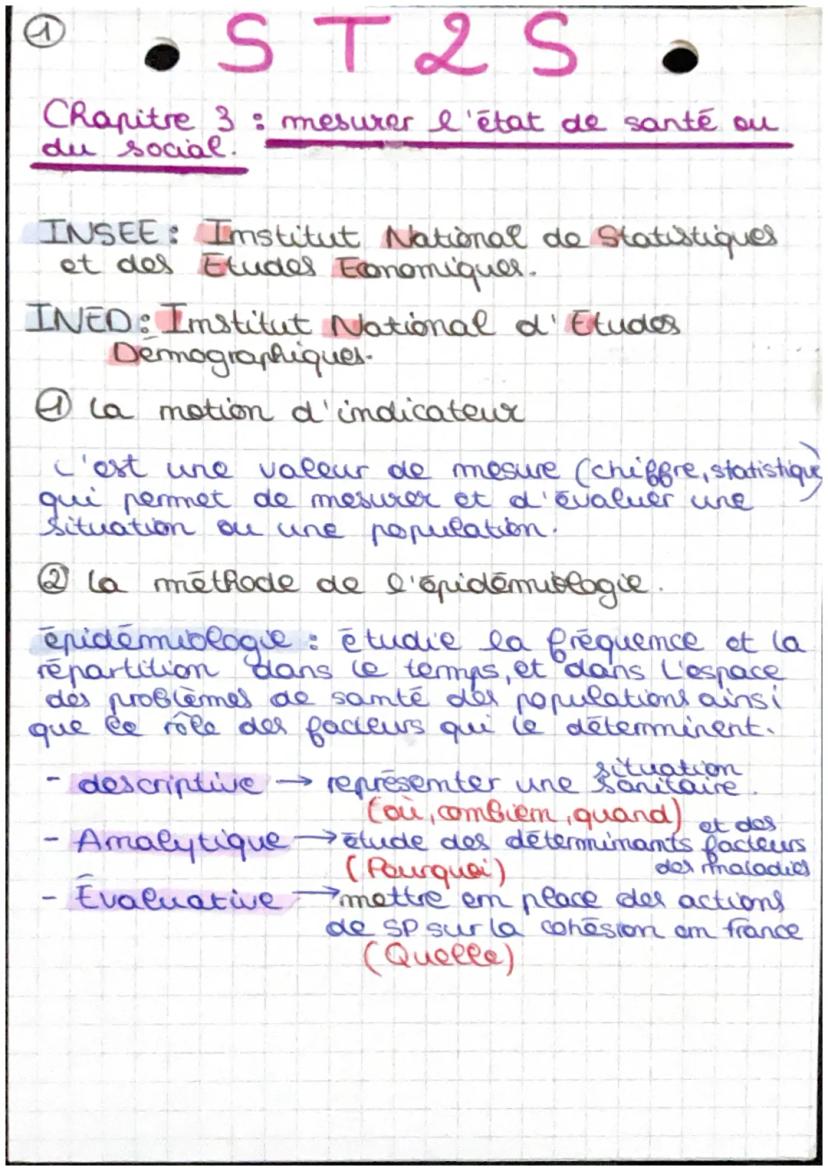 1
ST2S
Chapitre 3 : mesurer l'état de santé ou
du social.
INSEE : Institut National de Statistiques
et des Etudes Economiques.
INED : Institut National d'Etudes
Démographiques.
① La notion d'indicateur
C'est une valeur de mesure (chiffre, statistique)
qui permet de mesurer et d'évaluer une
situation ou une population.
② La méthode de l'épidémiologie.
épidémiologie : étudie la fréquence et la
répartition dans le temps, et dans l'espace
des problèmes de santé des populations ainsi
que le rôle des facteurs qui le déterminent.
- descriptive → représenter une situation
sanitaire.
(où, combien, quand)
- Analytique → étude des déterminants et des
facteurs
(Pourquoi) des maladies
- Évaluative → mettre en place des actions
de SP sur la cohésion en france
(Quelle)